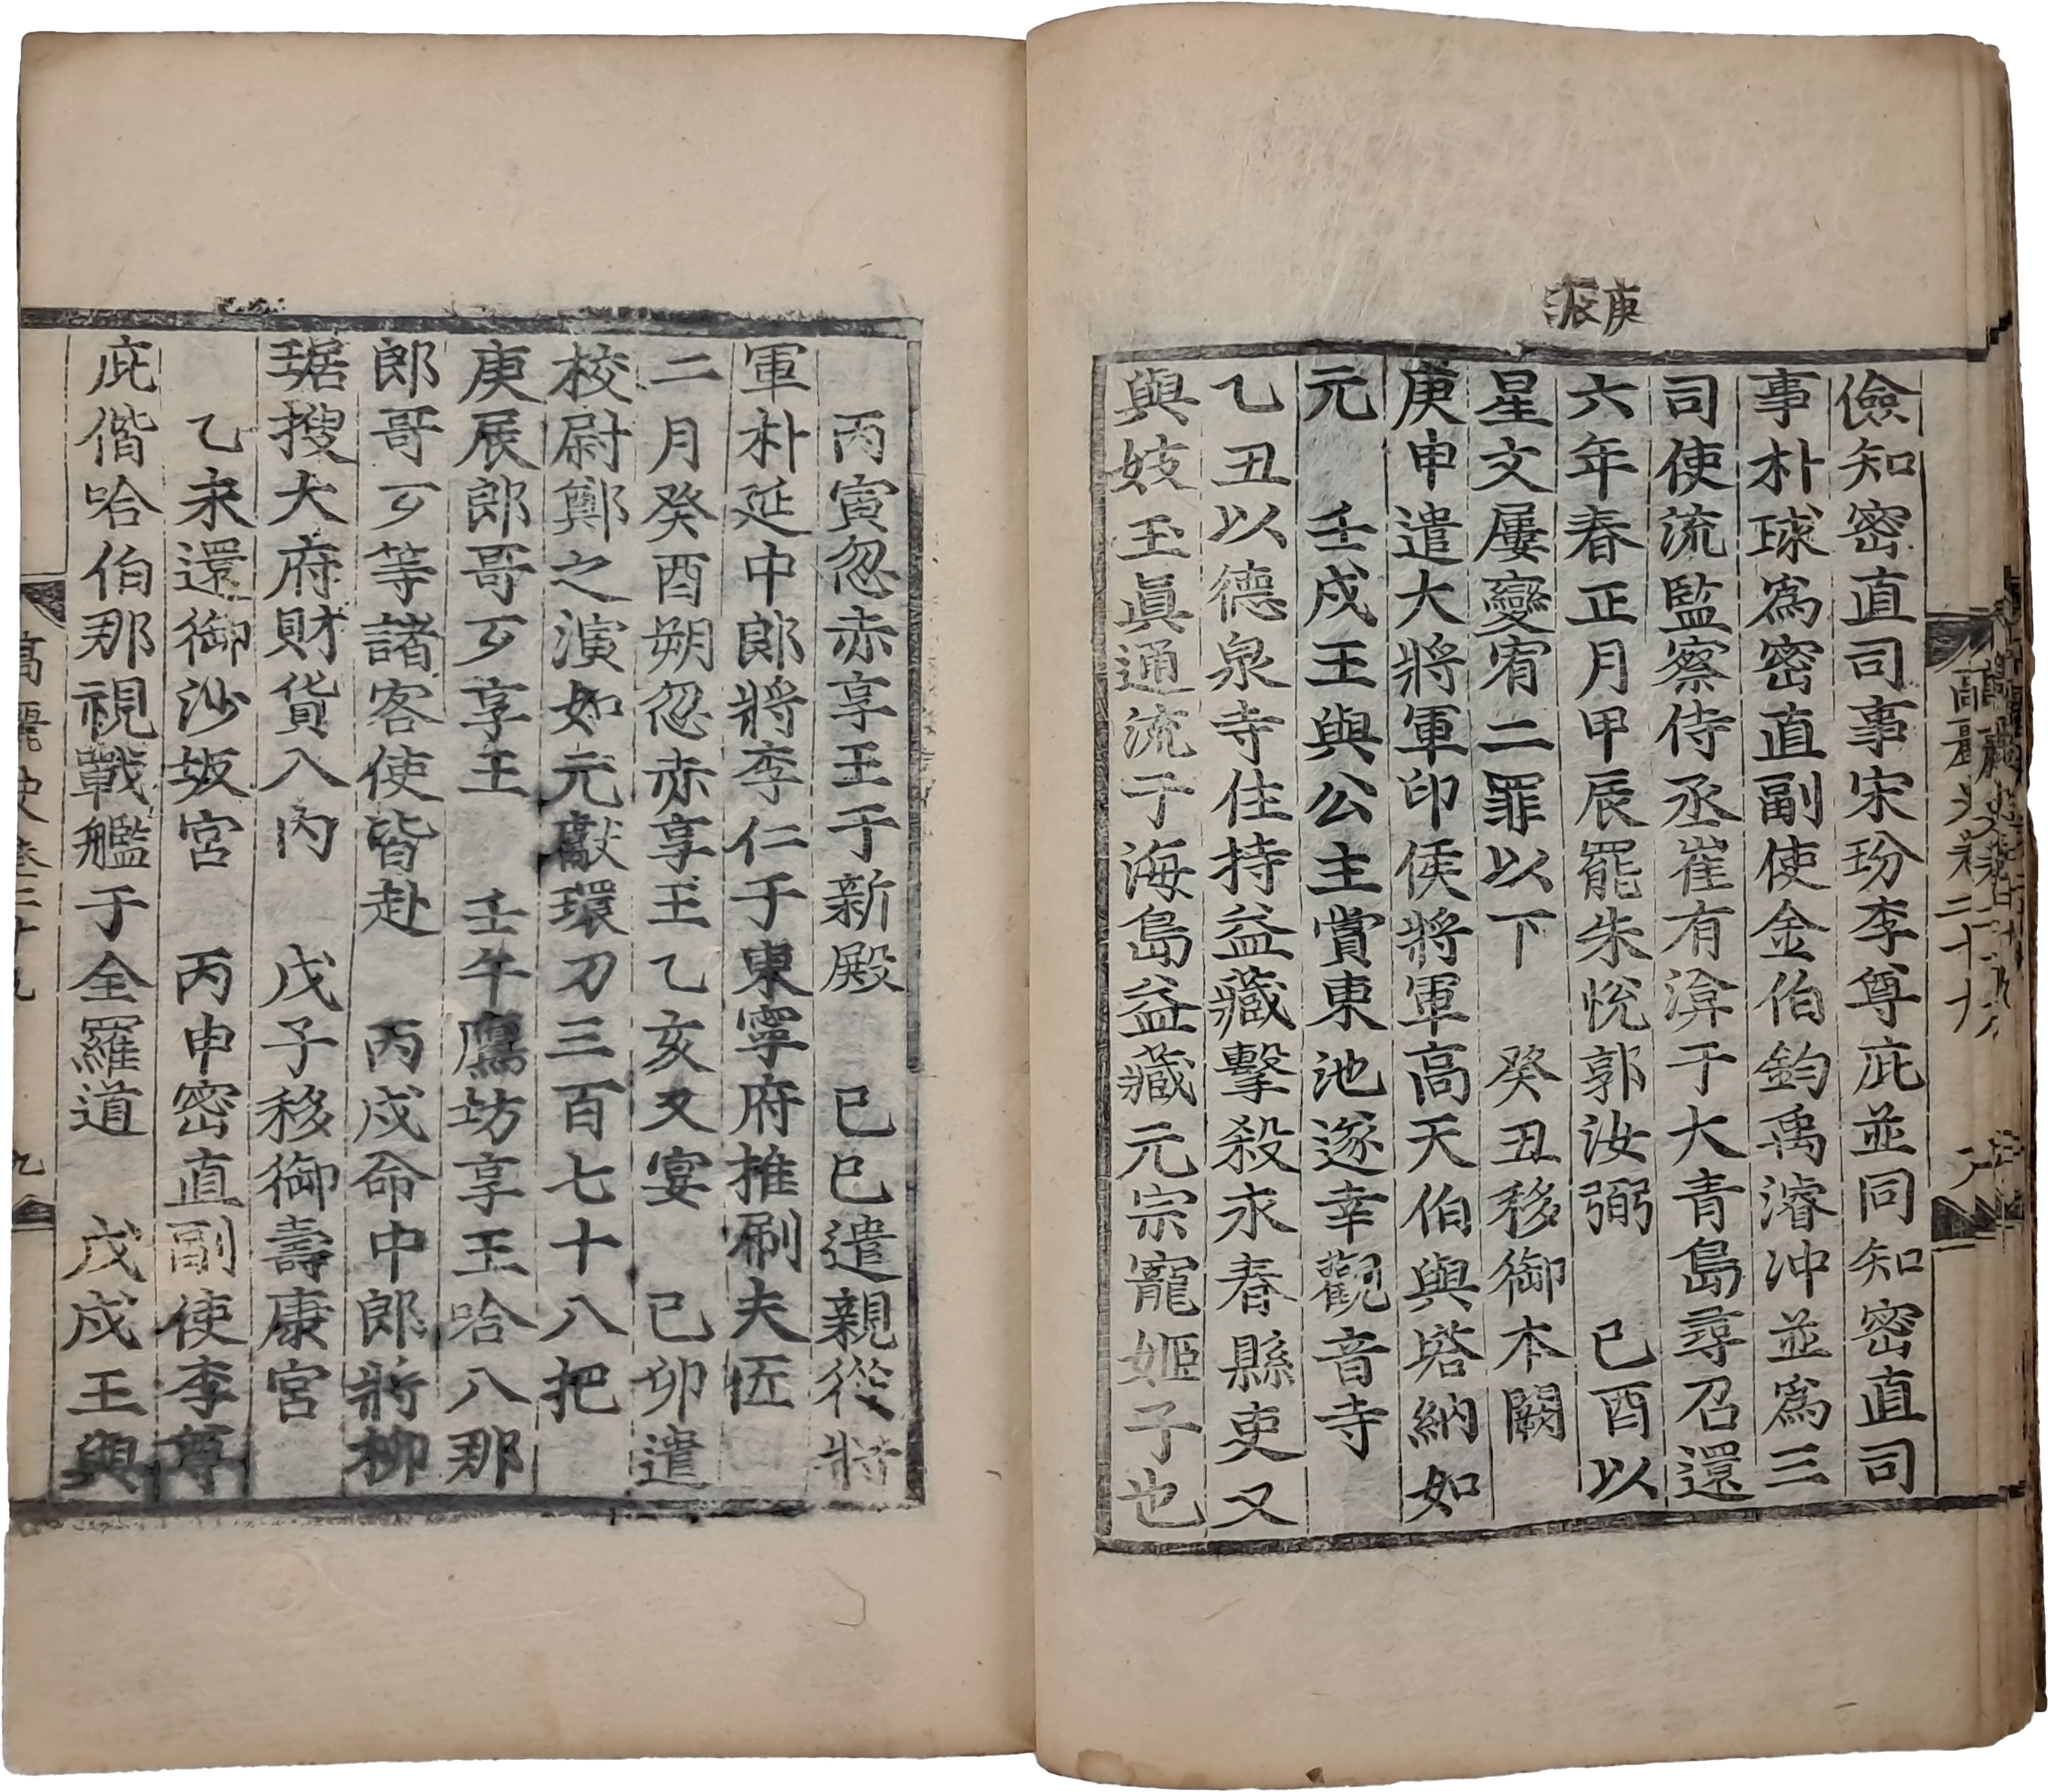 庚辰
儉知密直司事宋玢李尊庇並同知密直司
事朴球爲密直副使金伯鈞禹濬冲並爲三
司使流監察侍丞崔有渰于大青島尋召還
六年春正月甲辰罷朱悅郭汝弼 己酉以
星文屢變宥二罪以下 癸丑移御本闕
庚申遣大將軍印侯將軍高天伯與塔納如
元 壬戌王與公主賞東池遂幸觀音寺
乙丑以德泉寺住持益藏擊殺永春縣吏又
與妓玉眞通流于海島益藏元宗寵姬子也
高麗史卷二十九
丙寅忽赤享王于新殿 己巳遣親從將
軍朴延中郞將李仁于東寧府推刷夫匠
二月癸酉朔忽赤享王乙亥又宴 己卯遣
校尉鄭之演如元獻環刀三百七十八把
庚辰郎哥歹享王 壬午鷹坊享王哈八那
郎哥歹等諸客使皆赴 丙戌命中郎將柳
琚搜大府財貨入內 戊子移御壽康宮
乙未還御沙坂宮 丙申密直副使李尊
庇偕哈伯那視戰艦于全羅道 戊戌王與
高麗史卷二十九 九